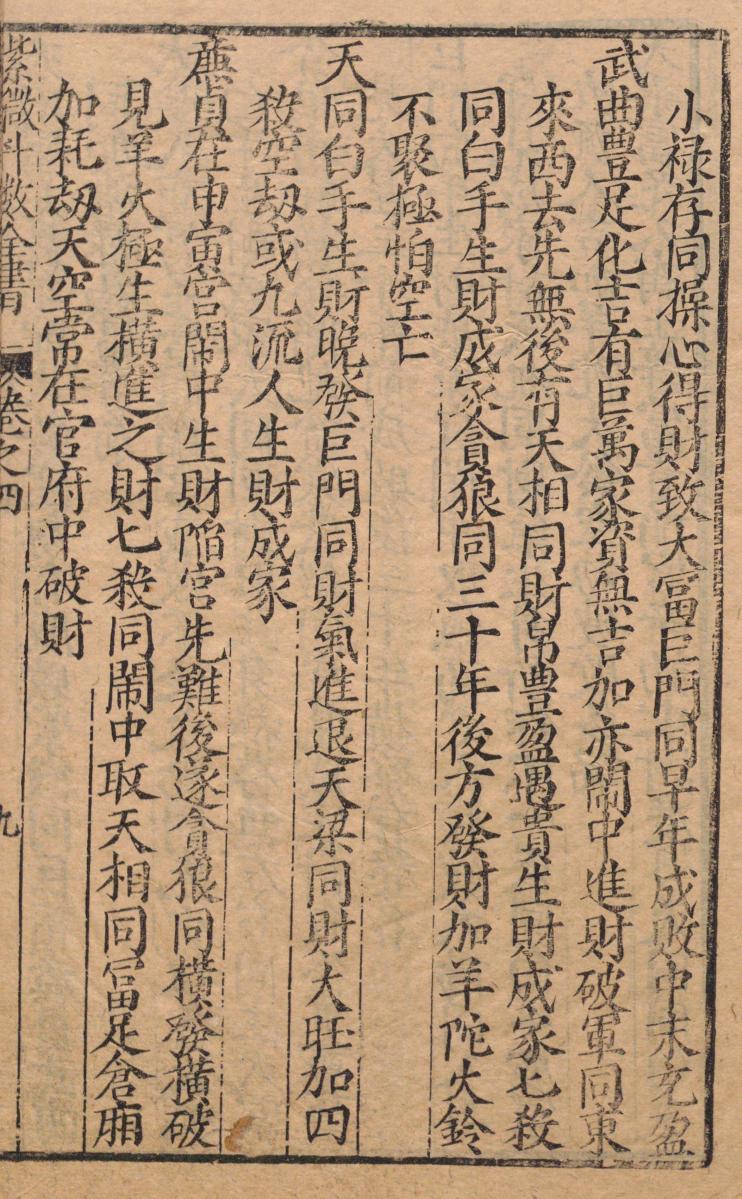 小禄存同操心得財致大冨巨門同早年成敗中末充盈
武曲豊足化吉有巨萬家資無吉加亦閙中進財破軍同東
來西去先無後有天相同財帛豊盈遇貴生財成家七殺
同白手生財成家貪狼同三十年後方發財加羊陀火鈴
不聚極怕空亡
天同白手生財晚發巨門同財氣進退天梁同財大旺加四
殺空劫或九流人生財成家
㢘貞在申寅宫閙中生財陥宫先難後遂貪狼同横發横破
見羊火極生横進之財七殺同閙中取天相同冨足倉廂
加耗劫天空常在官府中破財
紫微斗数全書 卷之四 九